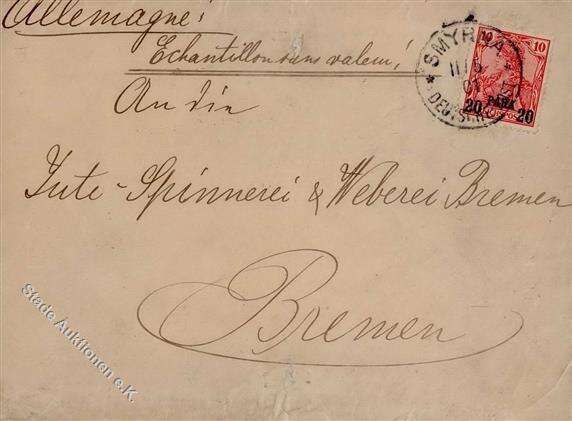 Allemagne!
Echantillon sans valeur!
An die
Jute-Spinnerei & Weberei Bremen
Bremen
SMYRNA
10
20 PARA 20
Stade Auktionen e.K.